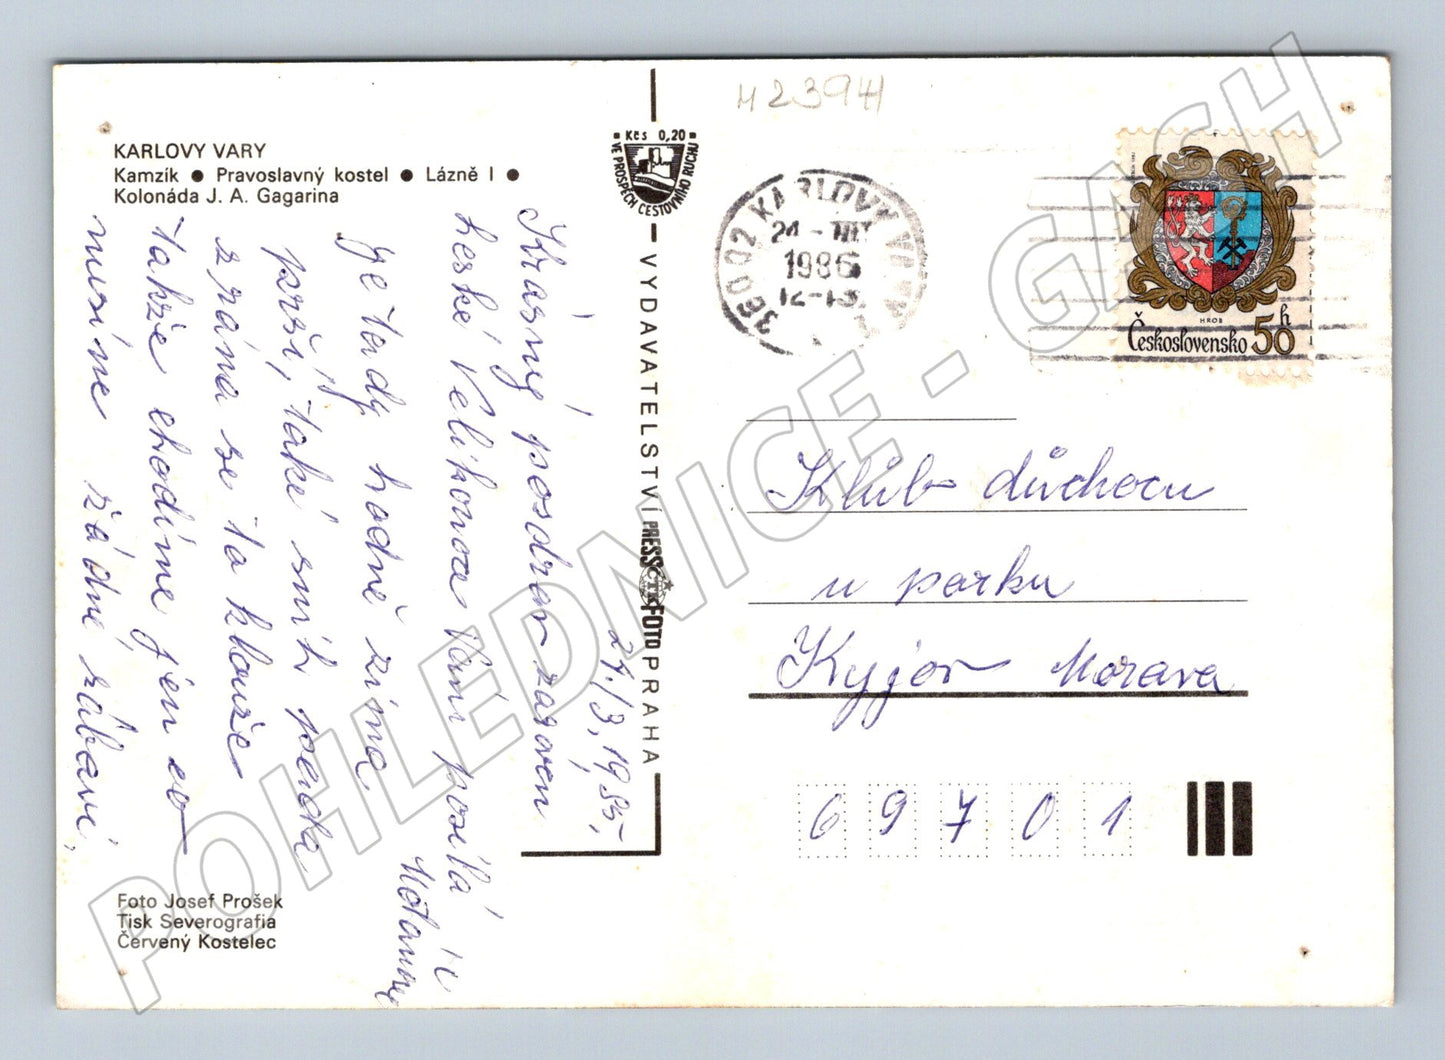 42394
KARLOVY VARY
Kamzík ● Pravoslavný kostel ● Lázně I ●
Kolonáda J. A. Gagarina
Kčs 0,20
VE PROSPĚCH CESTOVNÍHO RUCHU
VYDAVATELSTVÍ PRESSFOTO PRAHA
ČTK
360 02 KARLOVY VARY
24-III
1986
12-13
HROB
Československo 50h
24./3, 1985,
Krásný pozdrav zároveň
heské Velikonoce Vám posílá
Je tady hodně zima
prší, také sníh padá
zrána se to klouže
takže chodíme jen co
musíme žádné zábavi,
Klub důchocu
u parku
Kyjov Morava
69701
Foto Josef Prošek
Tisk Severografia
Červený Kostelec
POHLEDNICE - GASH